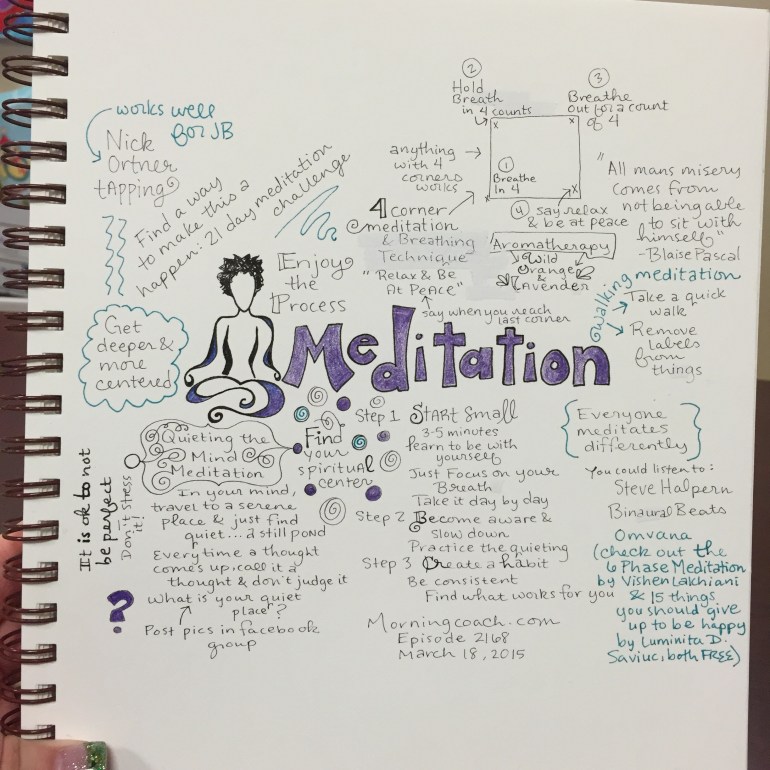 works well
for JB
Nick
Ortner
tApping
Find a way
to make this a
happen: 21 day meditation
challenge
Enjoy
the
Process
Get
deeper &
more
centered
②
Hold
Breath
in 4 counts
③
Breathe
out for a count
of 4
anything
with 4
corners
works
①
Breathe
In 4
x
x
x
x
④ say relax
& be at peace
4 corner
meditation
& Breathing
Technique
"Relax & Be
At Peace"
say when you reach
last corner
Aromatherapy
Wild
Orange &
Lavender
"All mans misery
comes from
not being able
to sit with
himself"
-Blaise Pascal
walking meditation
Take a quick
walk
Remove
labels
from
things
Meditation
Quieting the
Mind
Meditation
In your mind,
travel to a serene
place & just find
quiet...a still pond
Everytime a thought
comes up, call it a
thought & don't judge it
What is your quiet
place?
Post pics in facebook
group
It is ok to not
be perfect
Don't stress
it!
?
Find
your
spiritual
center
Step 1 START Small
3-5 minutes
learn to be with
yourself
Just Focus on your
Breath
Take it day by day
Step 2 Become aware &
slow down
Practice the quieting
Step 3 Create a habit
Be consistent
Find what works for you
Morningcoach.com
Episode 2168
March 18, 2015
Everyone
meditates
differently
You could listen to:
Steve Halpern
Binaural Beats
Omvana
(check out the
6 Phase Meditation
by Vishen Lakhiani
& 15 things
you should give
up to be happy
by Luminita D.
Saviuc, both FREE)